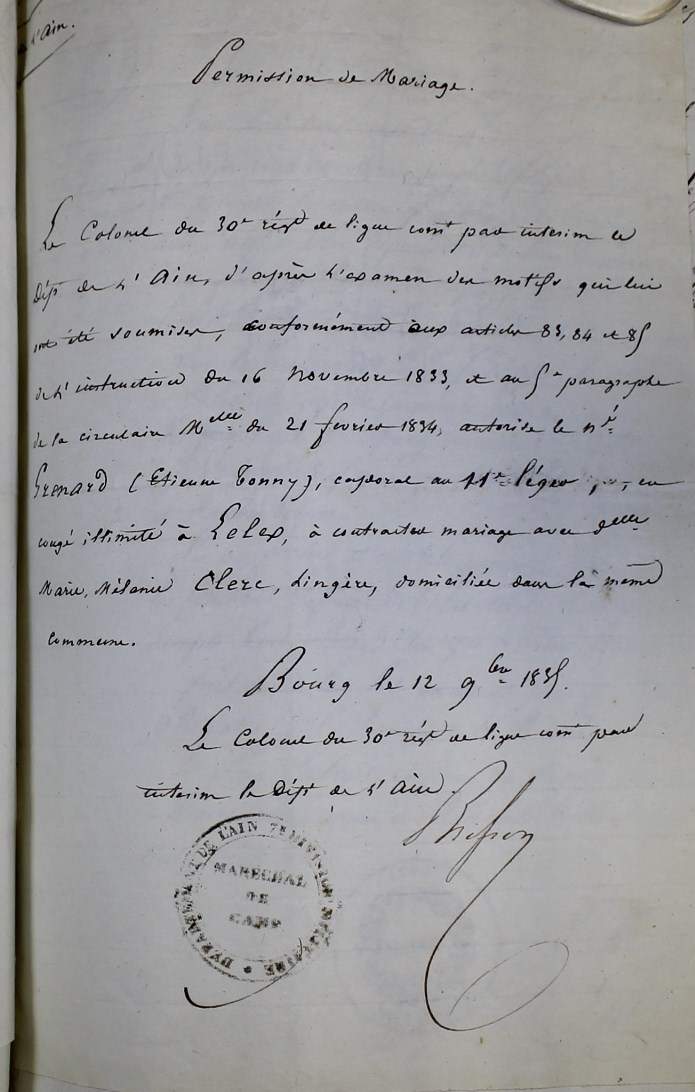 l'Ain.
Permission de Mariage.
Le Colonel du 30e régt de ligne comt par interim le
Dépt de l'Ain, d'après l'examen des motifs qui lui
ont été soumises, conformément aux articles 83, 84 et 85
de l'instruction du 16 Novembre 1833, et au 5e paragraphe
de la circulaire Melle du 21 février 1834, autorise le né
Grenard (Etienne Tonny), caporal au 11e léger, en
congé illimité à Lelex, à contracter mariage avec delle
Marie, Mélanie Clerc, Lingère, domiciliée dans la même
commune.
Bourg le 12 9bre 1835.
Le Colonel du 30e régt de ligne comt par
interim le Dépt de l'Ain.
DÉPARTEMENT DE L'AIN 7E DIVISION MILITAIRE
MARECHAL
DE
CAMP